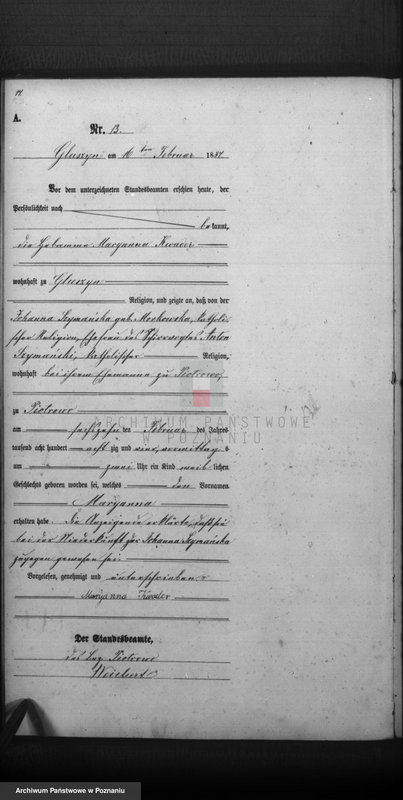 A.
Nr. 13.
Gluszyn am 16ten Februar 1884.
Vor dem unterzeichneten Standesbeamten erschien heute, der
Persönlichkeit nach
bekannt,
die Hebamme Maryanna Kwader
wohnhaft zu Gluszyn
Religion, und zeigte an, daß von der
Johanna Szymańska geb. Morkowska, katholi-
scher Religion, Ehefrau des Anton
Szymański, katholischer Religion,
wohnhaft bei ihrem Ehemanne zu Piotrowo,
zu Piotrowo
ARCHIWUM PAŃSTWOWE
W POZNANIU
am sechszehnten Februar des Jahres
tausend acht hundert achtzig und vier, vormittags
um zwei Uhr ein Kind weiblichen
Geschlechts geboren worden sei, welches den Vornamen
Maryanna
erhalten habe. Die Anzeigende erklärte, daß sie
bei der Niederkunft der Johanna Szymańska
zugegen gewesen sei.
Vorgelesen, genehmigt und unterschrieben
Maryanna Kwader
Der Standesbeamte,
des Bez. Piotrowo
Weichert
Archiwum Państwowe w Poznaniu